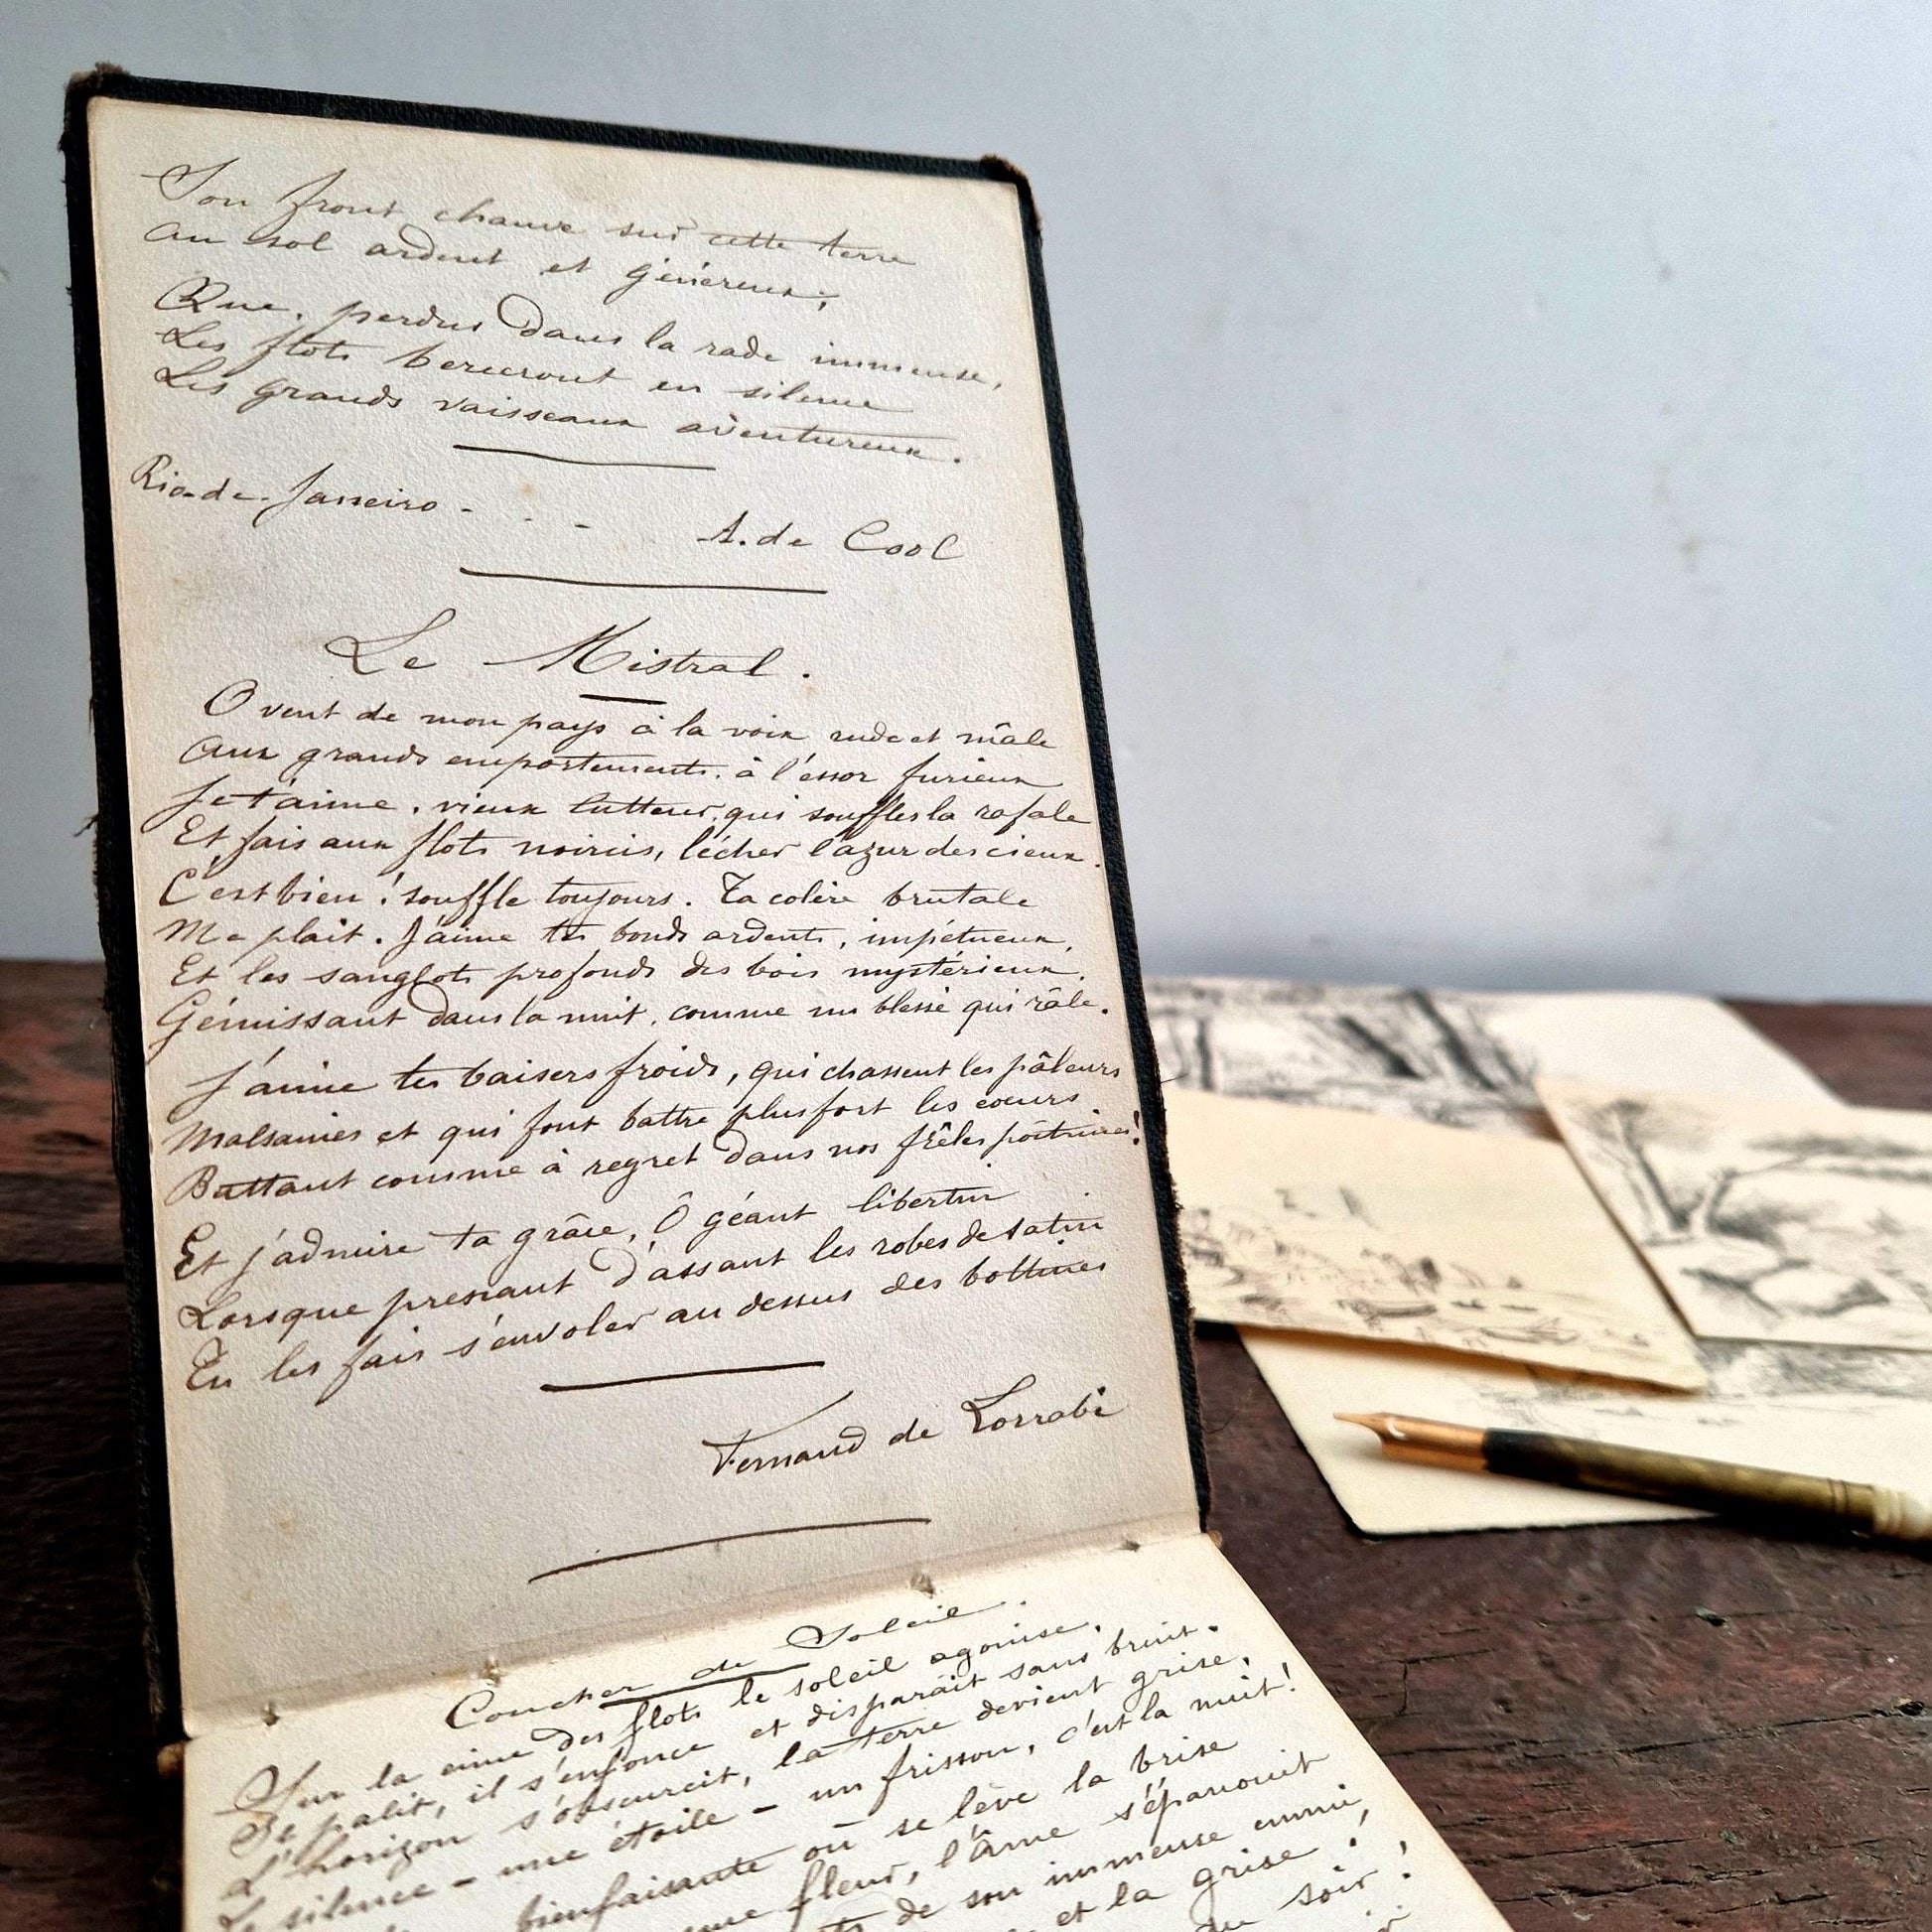 Son front chauve sur cette terre
Au sol ardent et généreux;
Que, perdus dans la rade immense,
Les flots berceront en silence
Les grands vaisseaux aventureux.
Rio-de-Janeiro - - -
A. de Cool
Le Mistral.
O vent de mon pays à la voix rude et mâle
Aux grands emportements, à l'essor furieux
Je t'aime, vieux lutteur, qui souffles la rafale
Et fais aux flots noircis, lécher l'azur des cieux.
C'est bien! souffle toujours. Ta colère brutale
Me plait. J'aime tes bonds ardents, impétueux,
Et les sanglots profonds des bois mystérieux,
Gémissant dans la nuit, comme un blessé qui râle.
J'aime tes baisers froids, qui chassent les pâleurs
Malsaines et qui font battre plus fort les coeurs
Battant comme à regret dans nos frêles poitrines!
Et j'admire ta grâce, Ô géant libertin
Lorsque prenant d'assaut les robes de satin
Tu les fais s'envoler au dessus des bottines
Fernand de
Coucher de Soleil.
Sur la cime des flots le soleil agonise,
Se palit, il s'enfonce et disparaît sans bruit.
L'horizon s'obscurcit, la terre devient grise,
Le silence - une étoile - un frisson, c'est la nuit!
bienfaisante où se lève la brise
fleur, l'âme s'épanouit
de son immense ennui,
et la grise!
du soir!